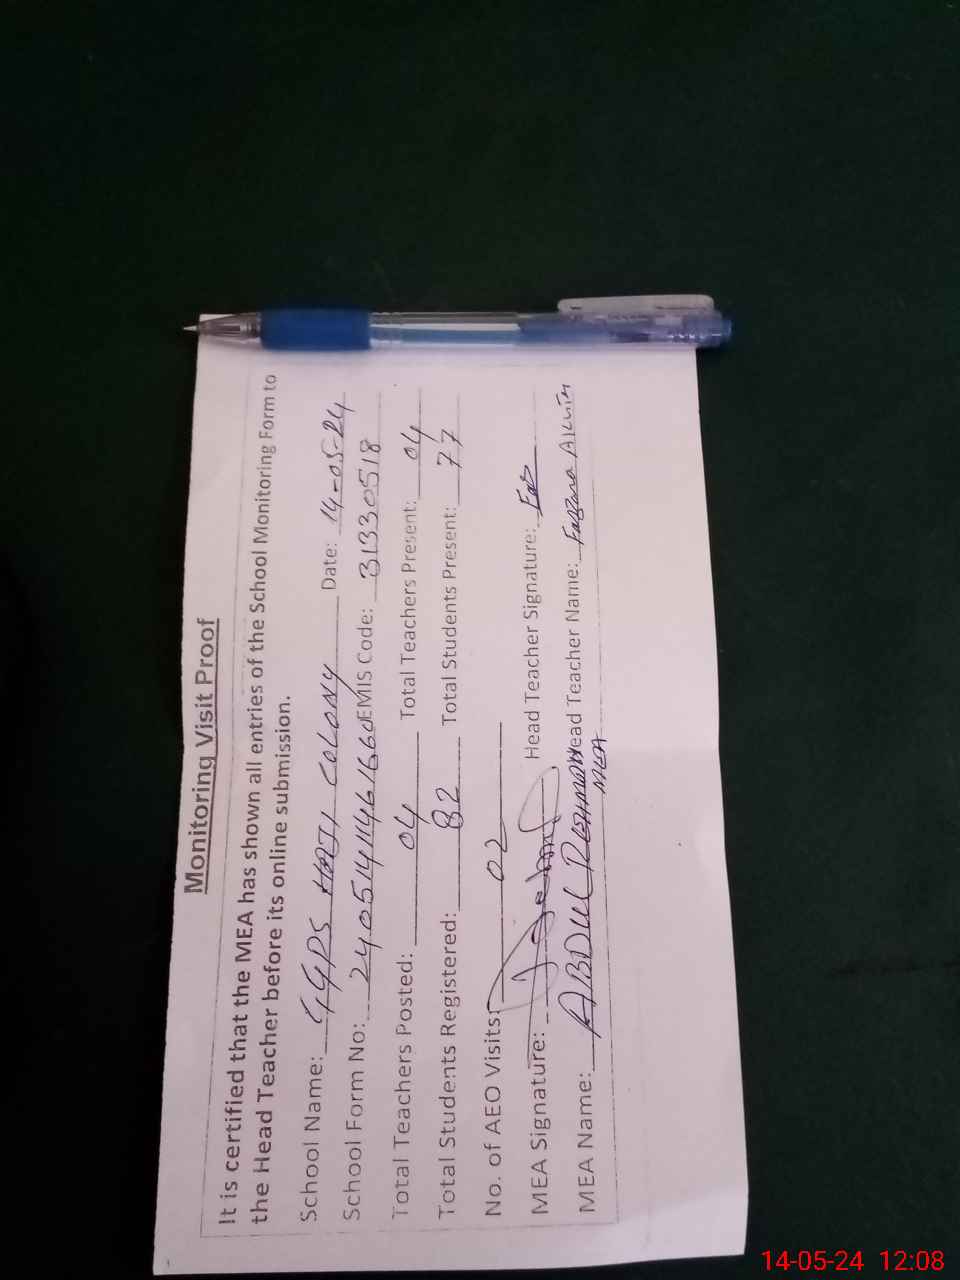 Monitoring Visit Proof
It is certified that the MEA has shown all entries of the School Monitoring Form to
the Head Teacher before its online submission.
School Name: GGPS HAJI COLONY Date: 14-05-24
School Form No: EMIS Code: 31330518
Total Teachers Posted: 04 Total Teachers Present: 04
Total Students Registered: 82 Total Students Present: 77
No. of AEO Visits: 02
MEA Signature: Head Teacher Signature:
MEA Name: ABDUL REHMAN Head Teacher Name: Farzana
MEA
14-05-24 12:08